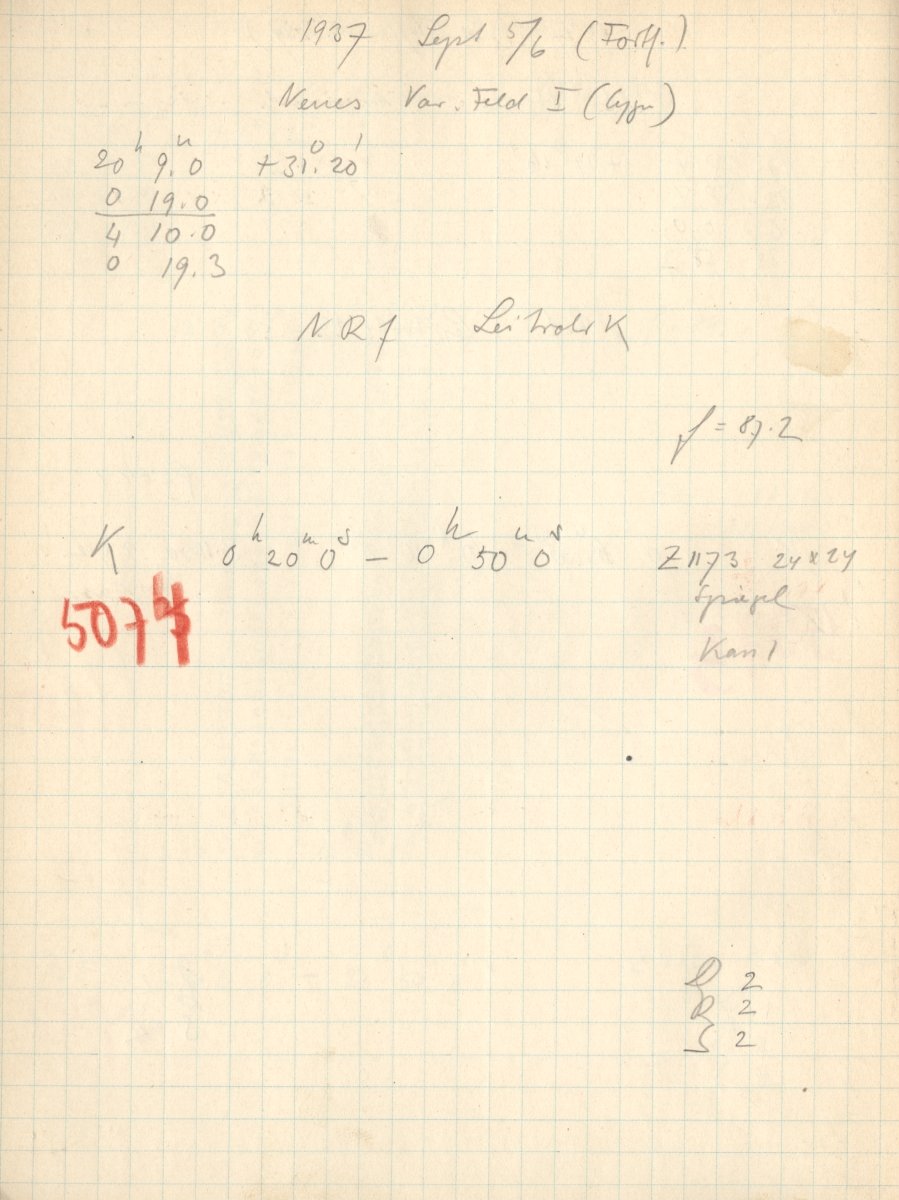 1937 Sept 5/6 (Fortf.)
Neues Var. Feld I (Cygn)
20ʰ 9.ᵐ0 +31.⁰20'
0 19.0
4 10.0
0 19.3
N R 7 Leitrohr K
f = 87.2
K 0ʰ 20ᵐ 0ˢ — 0ʰ 50ᵐ 0ˢ Z 1173 24 x 24
5074 Spiegel
Kass 1
D 2
R 2
S 2